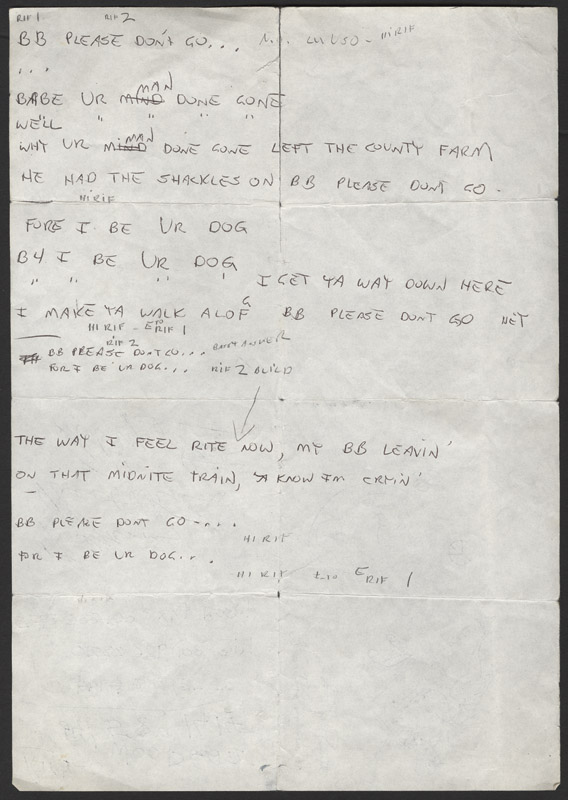 RIF 1 RIF 2
BB PLEASE DON'T GO... N.O. HI RIF
...
BABE UR MIND MAN DONE GONE
WE'LL " " " "
WHY UR MIND MAN DONE GONE LEFT THE COUNTY FARM
HE HAD THE SHACKLES ON BB PLEASE DONT GO.
HI RIF
FORE I BE UR DOG
B4 I BE UR DOG
" " " " I GET YA WAY DOWN HERE
I MAKE YA WALK ALOG BB PLEASE DONT GO HEY
HI RIF - E RIF 1
RIF 2
BB PLEASE DONT GO...
FOR I BE UR DOG... RIF 2 BUILD
THE WAY I FEEL RITE NOW, MY BB LEAVIN'
ON THAT MIDNITE TRAIN, 'A KNOW I'M CRYIN'
BB PLEASE DONT GO....
HI RIF
FOR I BE UR DOG...
HI RIF E RIF 1